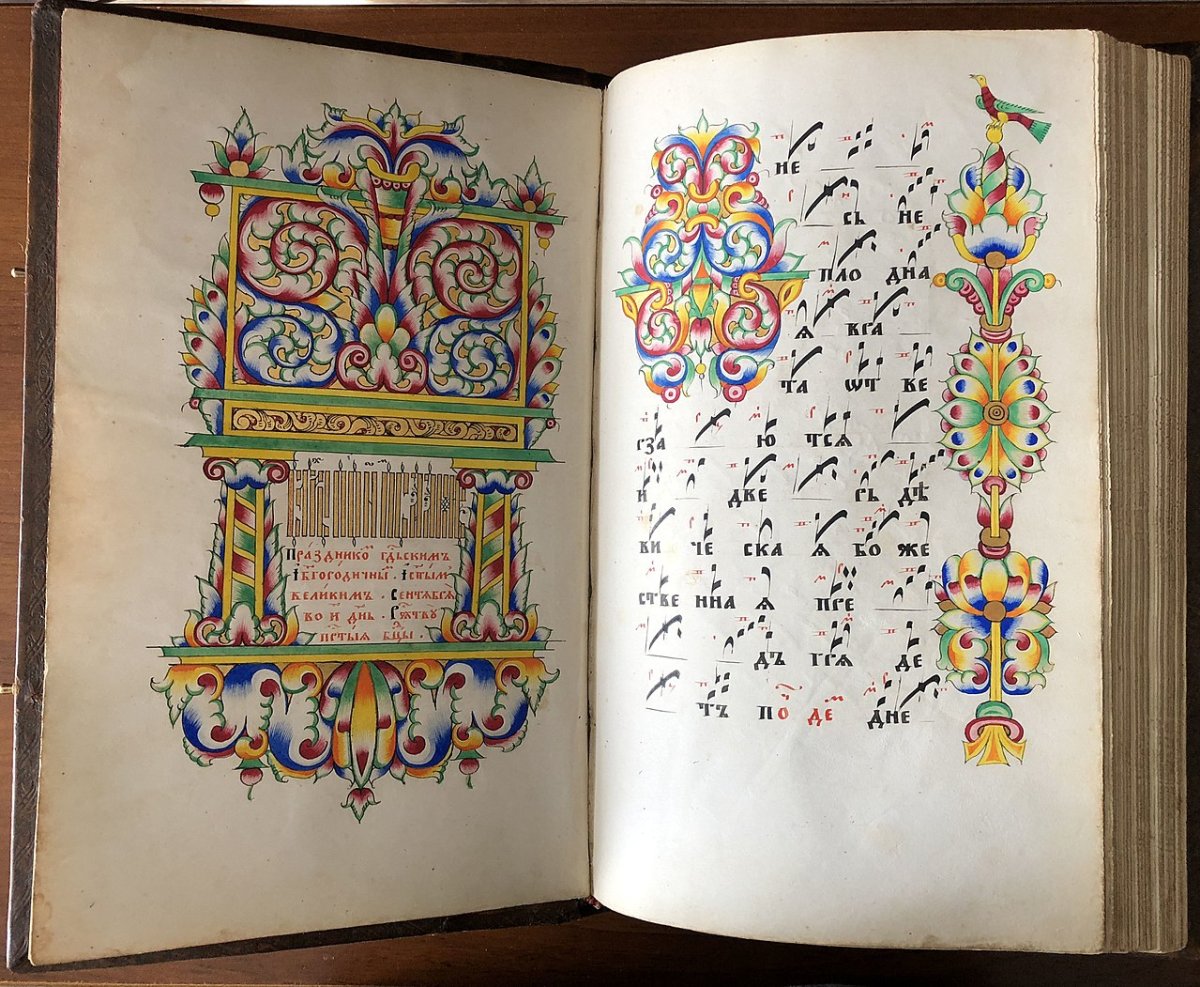 Праздникоⷨ гдⷭ҇ьскимъ
і бг҃ородичныⷨ . і ст҃ым
великимъ . Сентѧбрѧ
во и҃ днь . Рⷤтву
прⷭ҇тыѧ бц҃ы .
НЕ
СЬ НЕ
ПЛО ДНА
Ѧ ВРА
ТА ѾТ ВЕ
РЗА Ю ТСѦ
И ДВЕ РЬ ДѢ
ВИ ЧЕ СКА Ѧ БО ЖЕ
СТВЕ ННА Ѧ ПРЕ
ДЪ ГРѦ ДЕ
ТЪ ПО ДЕ ДНЕ